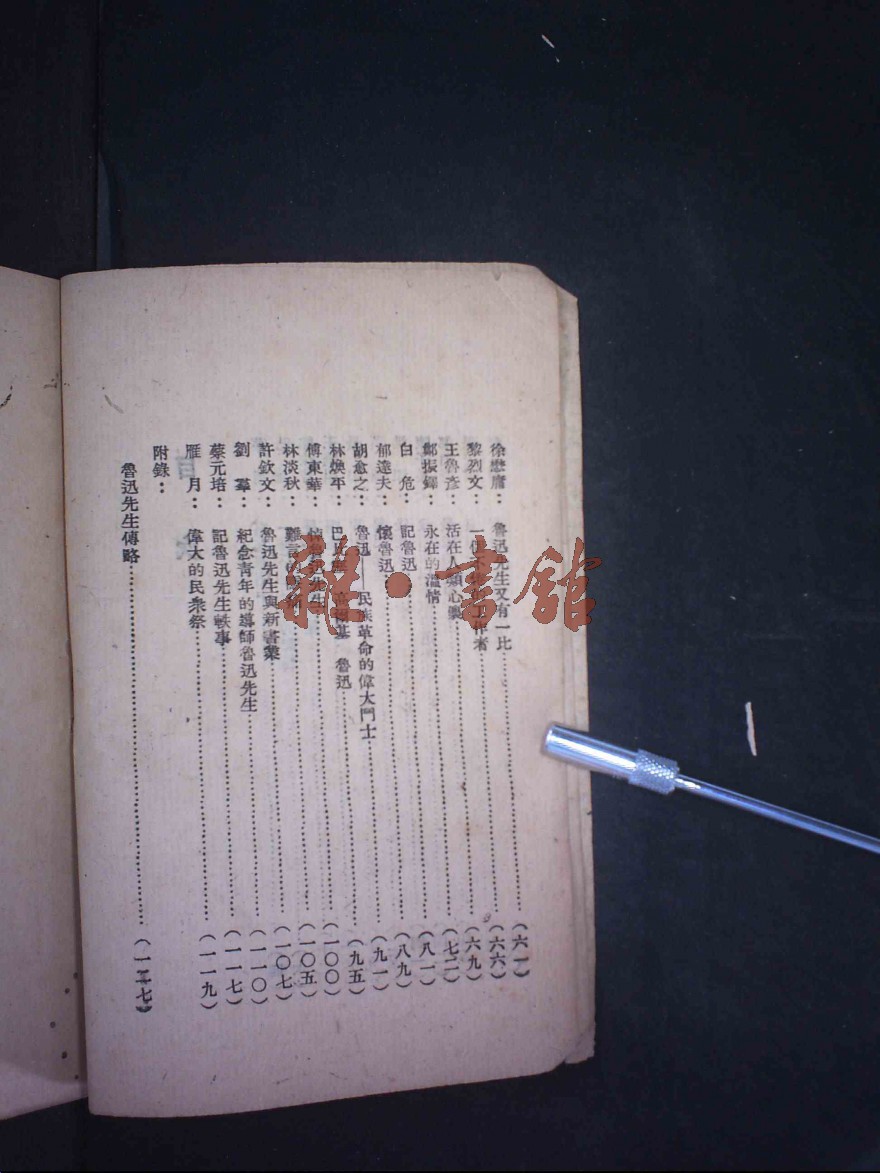 徐懋庸：魯迅先生又有一比……(六一)
黎烈文：一個不工作者……(六六)
王魯彥：活在人類心裏……(六九)
鄭振鐸：永在的溫情……(七二)
白　危：記魯迅……(八一)
郁達夫：懷魯迅……(八九)
胡愈之：魯迅——民族革命的偉大鬥士……(九一)
林煥平：巴比塞　高爾基　魯迅……(九五)
傅東華：悼魯迅先生……(一〇〇)
林淡秋：難言……(一〇五)
許欽文：魯迅先生與新書業……(一〇七)
劉　羣：紀念青年的導師魯迅先生……(一一〇)
蔡元培：記魯迅先生軼事……(一一七)
雁　月：偉大的民衆祭……(一一九)
附錄：
魯迅先生傳略……(一三七)
雜·書館